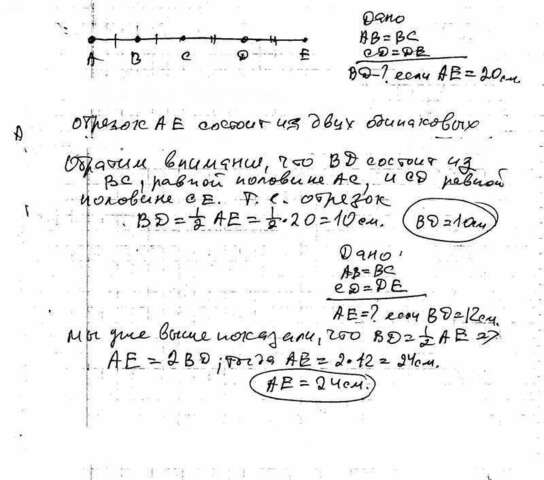 A B C D E
Дано
AB=BC
CD=DE
BD-? если AE=20см
отрезок AE состоит из двух одинаковых
Обратим внимание, что BD состоит из
BC, равной половине AC, и CD равной
половине CE. Т.е. отрезок
BD=½ AE=½·20=10см.
BD=10см
Дано:
AB=BC
CD=DE
AE=? если BD=12см.
Мы уже выше показали, что BD=½ AE ⇒
AE=2BD; тогда AE=2·12=24см.
AE=24см.